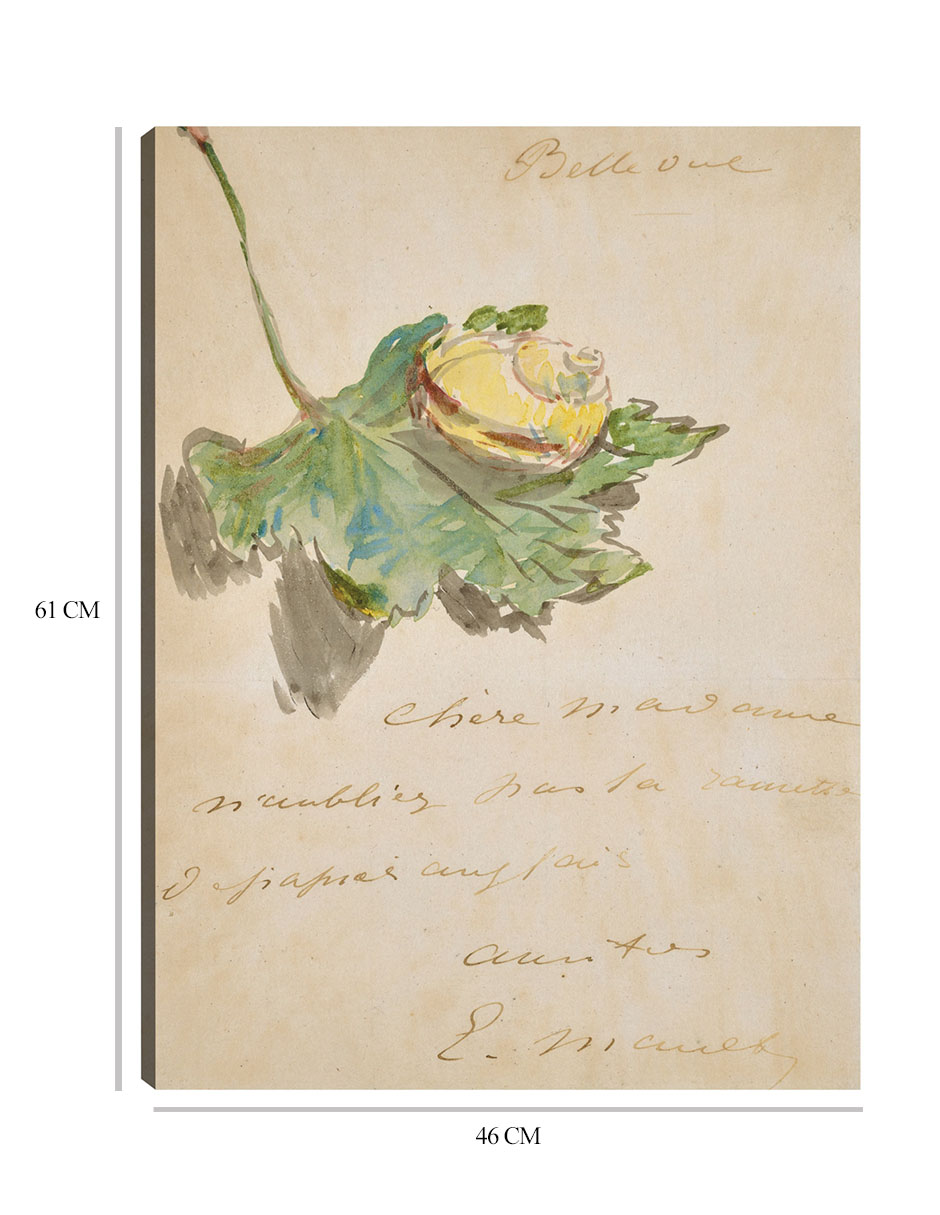 Bellevue
61 CM
chère madame
n'oubliez pas la ramette
de papier anglais
amitiés
E. Manet
46 CM